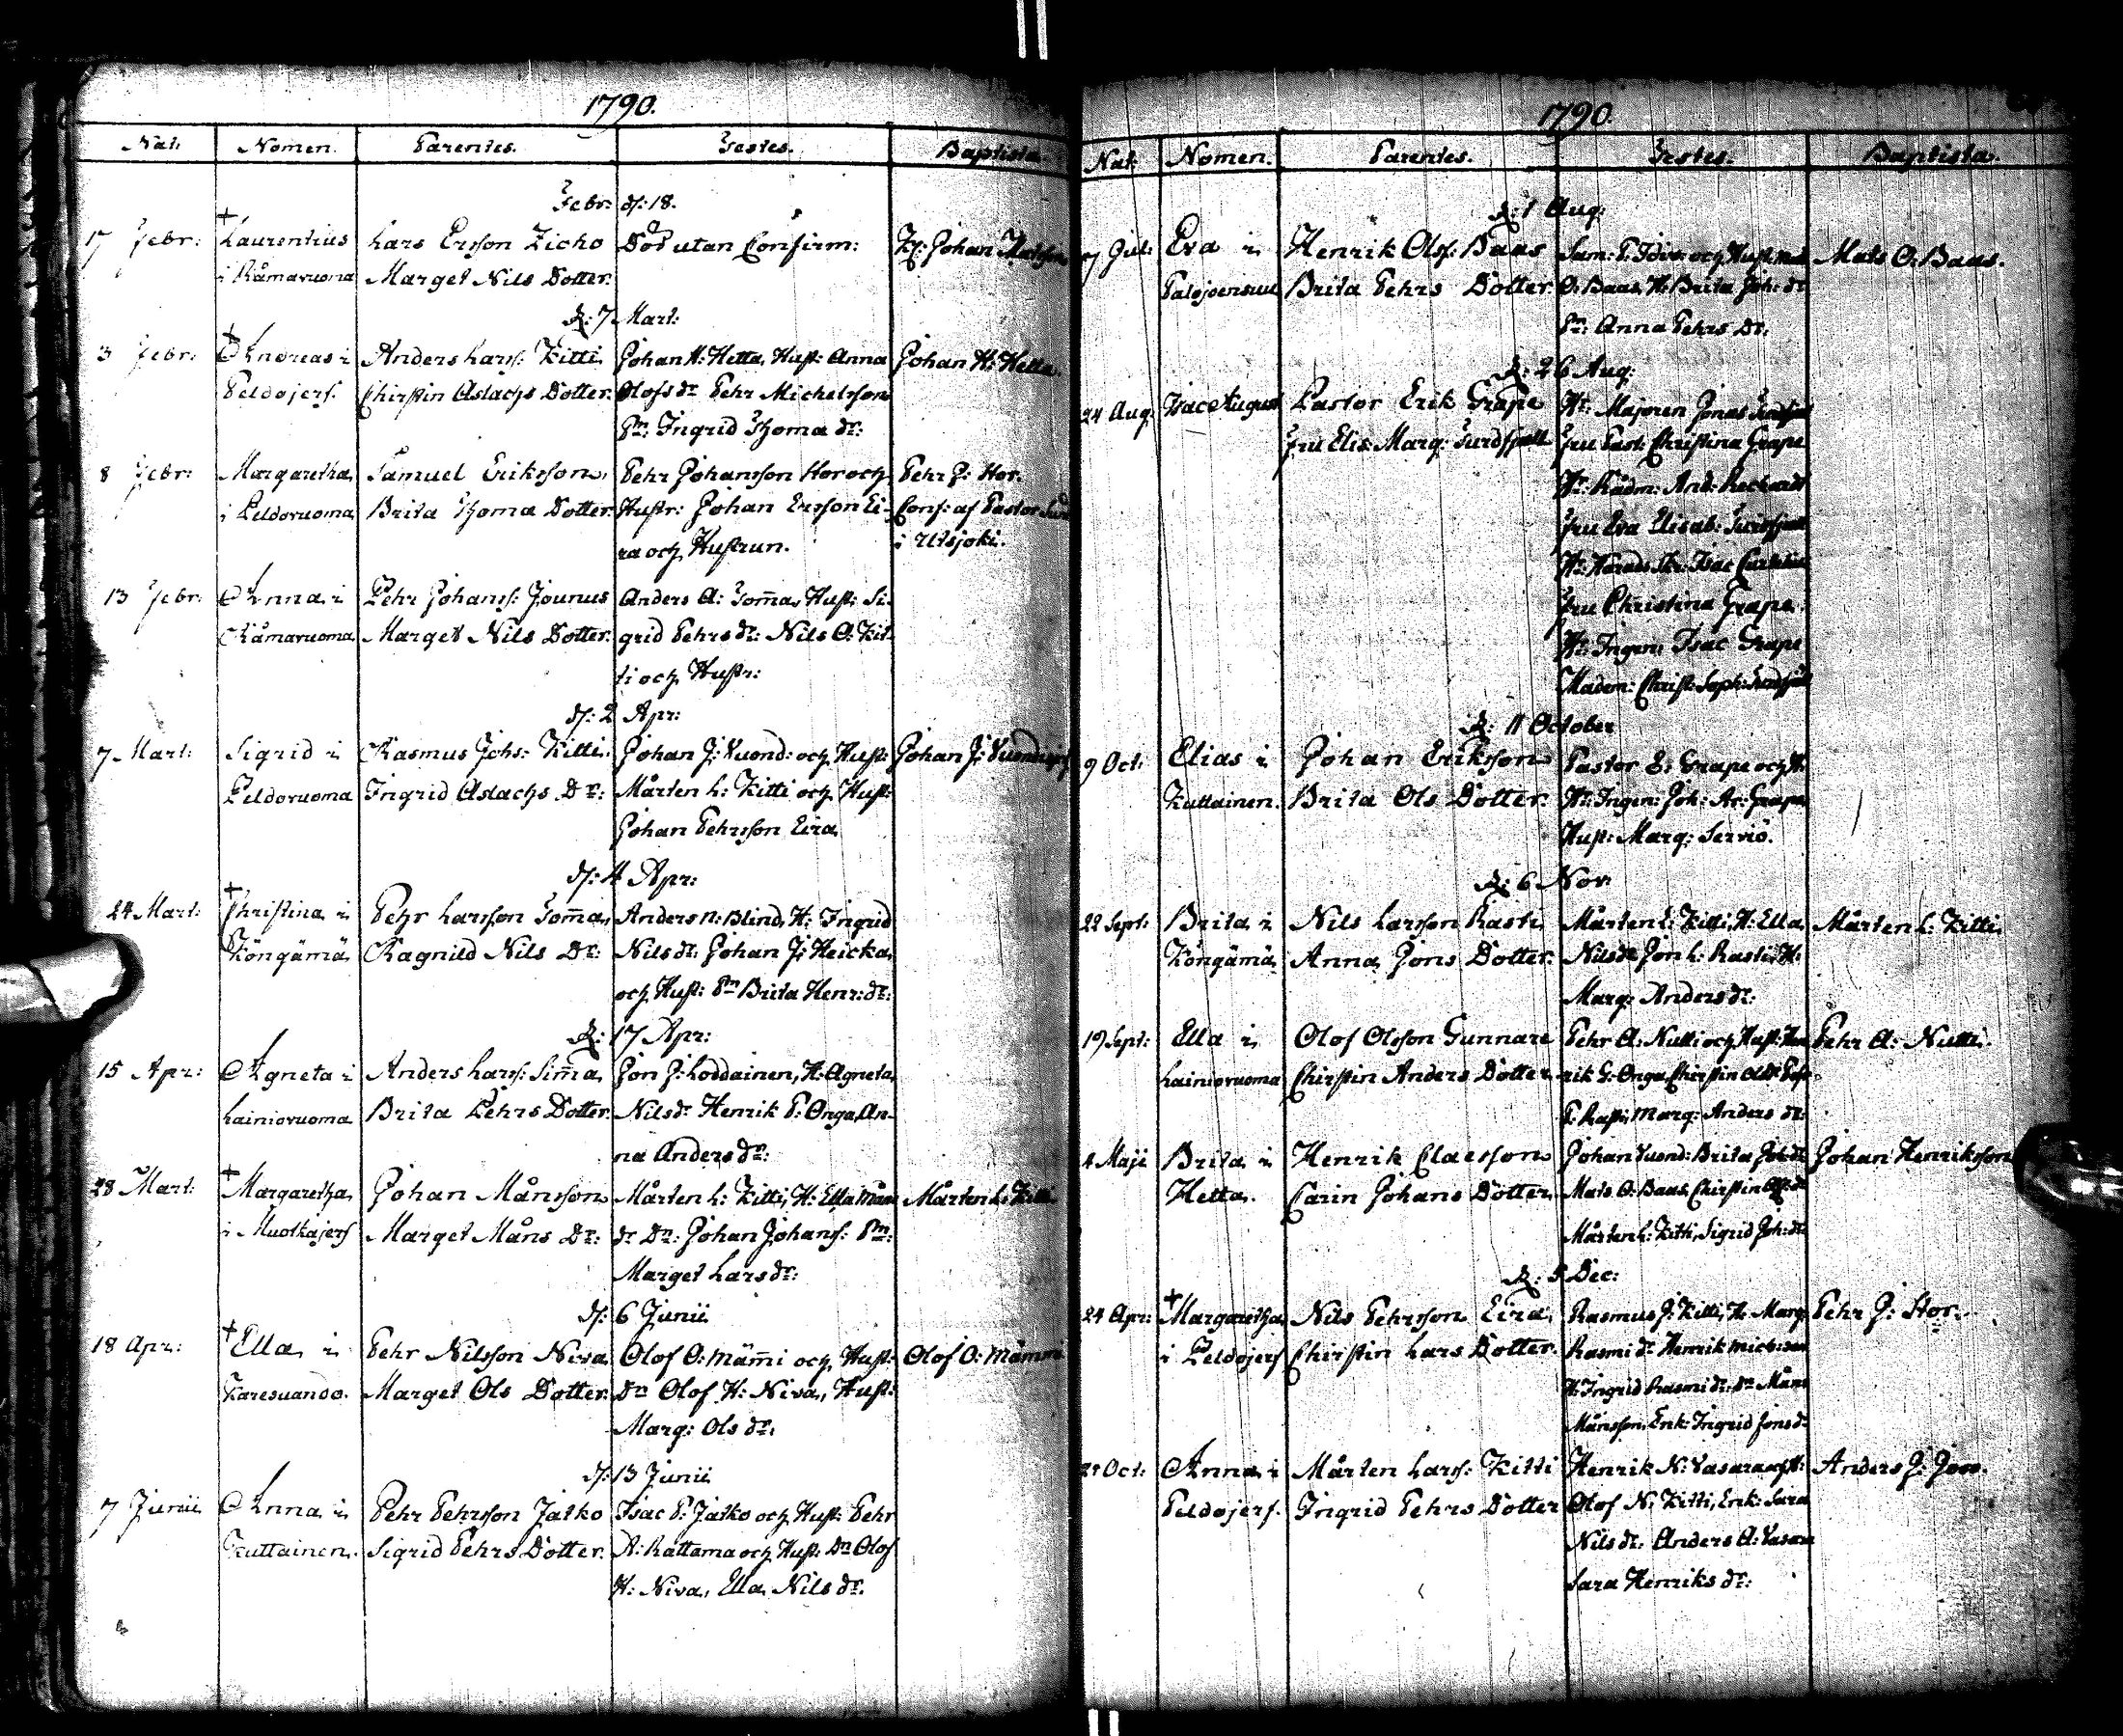 1790.
Nat: Nomen. Parentes. Testes. Baptista
Febr: d: 18.
17 Febr: † Laurentius Lars Ersson Zicho Död utan Confirm: Kl: Johan Matsson
i Råmavuoma Marget Nils Dotter.
d: 7 Mart:
3 Febr: † Andreas i Anders Larss: Kitti Johan H: Hetta, Hust: Anna Johan H: Hetta.
Peldojerf. Chirstin Aslachs Dotter. Olofs dr Pehr Michelsson
Pn: Ingrid Thoma dr:
8 Febr: Margaretha Samuel Eriksson, Pehr Johansson Hor och Pehr J: Hor.
i Peldovuoma Brita Thoma Dotter. Hustr: Johan Ersson Ei- Conf: af Pastor
ra och Hustrun. i Utsjoki.
13 Febr: Anna i Pehr Johanss: Jounus Anders A: Tom̄a, Hust: Si-
Råmavuoma Marget Nils Dotter. grid Pehrs dr: Nils O: Kit-
ti och Hustr:
d: 2 Apr:
7 Mart: Sigrid i Rasmus Johs: Kitti Johan J: Vuond: och Hust: Johan J:
Peldovuoma Ingrid Aslachs Dr: Mårten L: Kitti och Hust:
Johan Pehrsson Eira
d: 4 Apr:
24 Mart: † Christina i Pehr Larsson Tom̄a, Anders N: Blind, H: Ingrid
Köngämä Ragnild Nils Dr: Nils dr: Johan J: Heicka,
och Hust: Pn Brita Henr: dr:
d: 17 Apr:
15 Apr: Agneta i Anders Larss: Sim̄a, Jon J: Loddainen, H: Agneta
Lainiovuoma Brita Pehrs Dotter. Nils dr Henrik P: Onga, An-
na Anders dr:
28 Mart: † Margaretha Johan Månsson Mårten L: Kitti, H: Ella Måns Mårten L: Kitti
i Muotkajerf Marget Måns Dr: dr Dn: Johan Johans: Pm:
Marget Lars dr:
d: 6 Junii
18 Apr: † Ella i Pehr Nilsson Niva Olof O: Mäm̄i och Hust: Olof O: Mämmi
Karesuando. Marget Ols Dotter. Dn Olof H: Niva, Hust:
Marg: Ols dr.
d: 13 Junii
7 Junii Anna i Pehr Pehrsson Jatko Isac P: Jatko och Hust: Pehr
Kuttainen. Sigrid Pehrs Dotter. A: Rattama och Hust: Dn Olof
H: Niva, Ella Nils dr.
1790.
Nat: Nomen. Parentes. Testes. Baptista.
d: 1 Aug:
7 Jul: Eva i Henrik Olsf: Baas Sam: P: och Hust: Mats O: Baas.
Palojoensuu Brita Pehrs Dotter O: Baas, H: Brita Joh: dr
Pn: Anna Pehrs Dr.
d: 26 Aug:
24 Aug. Isac August Pastor Erik Grape Hr: Majoren Jonas
Fru Elis: Marg: Turdfjæll Fru Past: Christina Grape
Hr: Rådm: And:
Fru Eva Elisab:
Hr: Härads Skr: Isac
Fru Christina Grape
Hr: Ingen: Isac Grape
Madem: Christ: Soph:
d: 11 October
9 Oct: Elias i Johan Eriksson Pastor E: Grape och H:
Kuttainen. Brita Ols Dotter. Hr: Ingen: Joh: Ar: Grape
Hust: Marg: Serviö.
d: 6 Nov:
22 Sept: Brita i Nils Larsson Rasti Mårten L: Kitti, H: Ella Mårten L: Kitti
Köngämä Anna Jons Dotter. Nils dr Jon L: Rasti, H:
Marg: Anders dr:
19 Sept: Ella i Olof Olsson Gunnare Pehr A: Nutti och Hust: Hen Pehr A: Nutti.
Lainiovuoma Chirstin Anders Dotter rik G: Onga, Chirstin
P: Rasti, Marg: Anders dr:
4 Maji Brita i Henrik Claesson Johan Vuond: Brita Joh: dr Johan Henriksson
Hetta. Carin Johans Dotter. Mats O: Baas, Chirstin Ols: dr
Mårten L: Kitti, Sigrid Joh: dr
d: 5 Dec:
24 Apr: † Margaretha Nils Pehrsson Eira, Rasmus J: Kitti, H: Marg Pehr J: Hor.
i Peldojerf Chirstin Lars Dotter. Rasmi dr Henrik Mich:son
H: Ingrid Rasmi dr. Dn Måns
Månsson, Enk: Ingrid Jons dr
21 Oct: Anna i Mårten Larss: Kitti Henrik N: Vasara och H: Anders J:
Peldojerf. Ingrid Pehrs Dotter Olof N: Kitti, Enk: Sara
Nils dr. Anders A: Vasara
Sara Henriks dr: